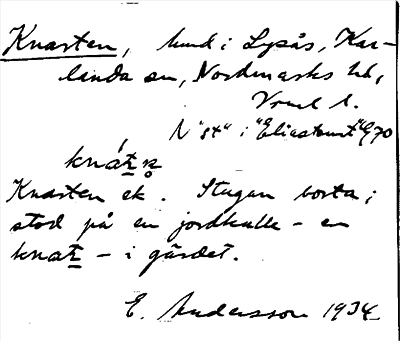 Knarten, hmd i Lysås, Kar-
landa sn, Nordmarks hd,
Vrml l.
N "st" i "Eliastomt" G70
knát̠n̥
Knarten ek. Stugan borta;
stod på en jordkulle - en
knat̠ - i gärdet.
E. Andersson 1934